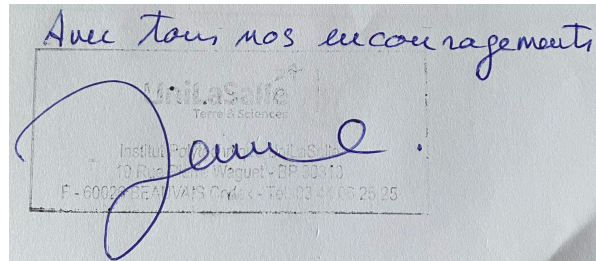 Avec tous nos encouragements
UniLaSalle
Terre & Sciences
Institut Polytechnique UniLaSalle
Waguet - BP 30313
F - 60026 BEAUVAIS Cedex - Tél. 03 44 06 25 25